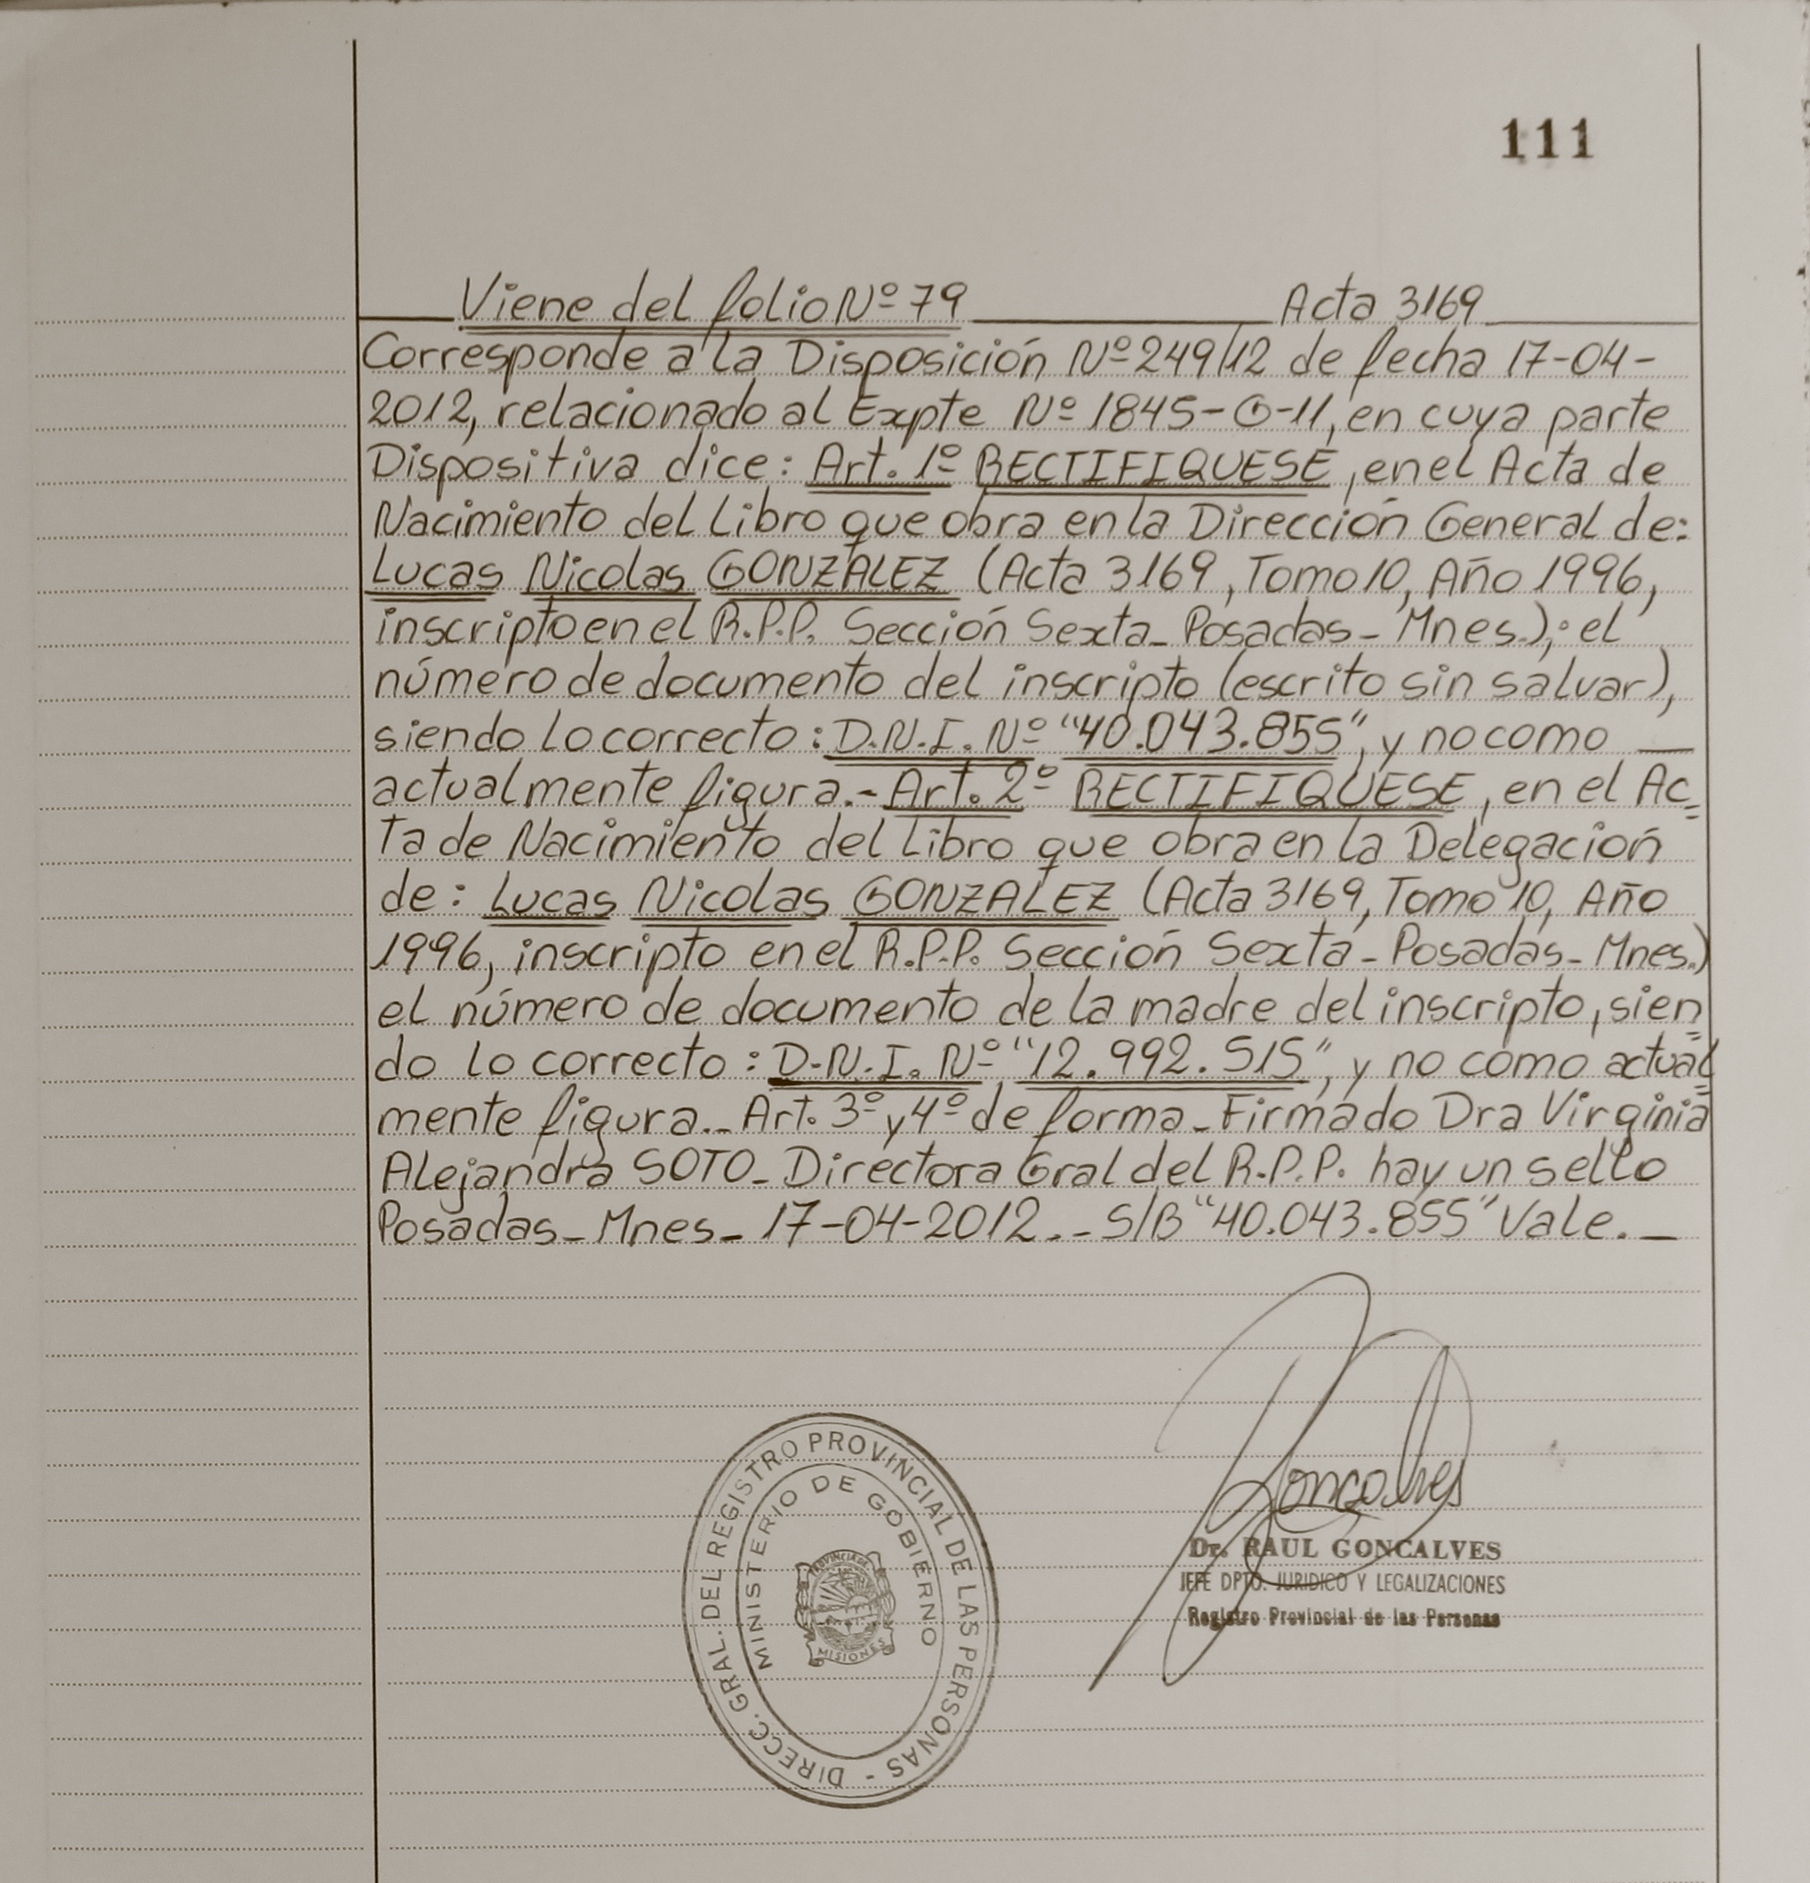 111
Viene del folio Nº 79 Acta 3169
Corresponde a la Disposición Nº 249/12 de fecha 17-04-
2012, relacionado al Expte Nº 1845-G-11, en cuya parte
Dispositiva dice: Art. 1º RECTIFIQUESE, en el Acta de
Nacimiento del Libro que obra en la Dirección General de:
Lucas Nicolas GONZALEZ (Acta 3169, Tomo 10, Año 1996,
inscripto en el R.P.P. Sección Sexta_ Posadas_ Mnes.); el
número de documento del inscripto (escrito sin salvar),
siendo lo correcto: D.N.I. Nº "40.043.855", y no como __
actualmente figura.- Art. 2º RECTIFIQUESE, en el Ac=
ta de Nacimiento del Libro que obra en la Delegación
de: Lucas Nicolas GONZALEZ (Acta 3169, Tomo 10, Año
1996, inscripto en el R.P.P. Sección Sexta_ Posadas_ Mnes.)
el número de documento de la madre del inscripto, sien=
do lo correcto: D.N.I. Nº "12.992.515", y no como actual=
mente figura._ Art. 3º y 4º de forma_ Firmado Dra Virginia
Alejandra SOTO_ Directora Gral del R.P.P. hay un sello
Posadas_ Mnes_ 17-04-2012._ S/B "40.043.855" Vale._
DIRECC. GRAL. DEL REGISTRO PROVINCIAL DE LAS PERSONAS -
MINISTERIO DE GOBIERNO
PROVINCIA DE
MISIONES
Goncalves
Dr. RAUL GONCALVES
JEFE DPTO. JURIDICO Y LEGALIZACIONES
Registro Provincial de las Personas